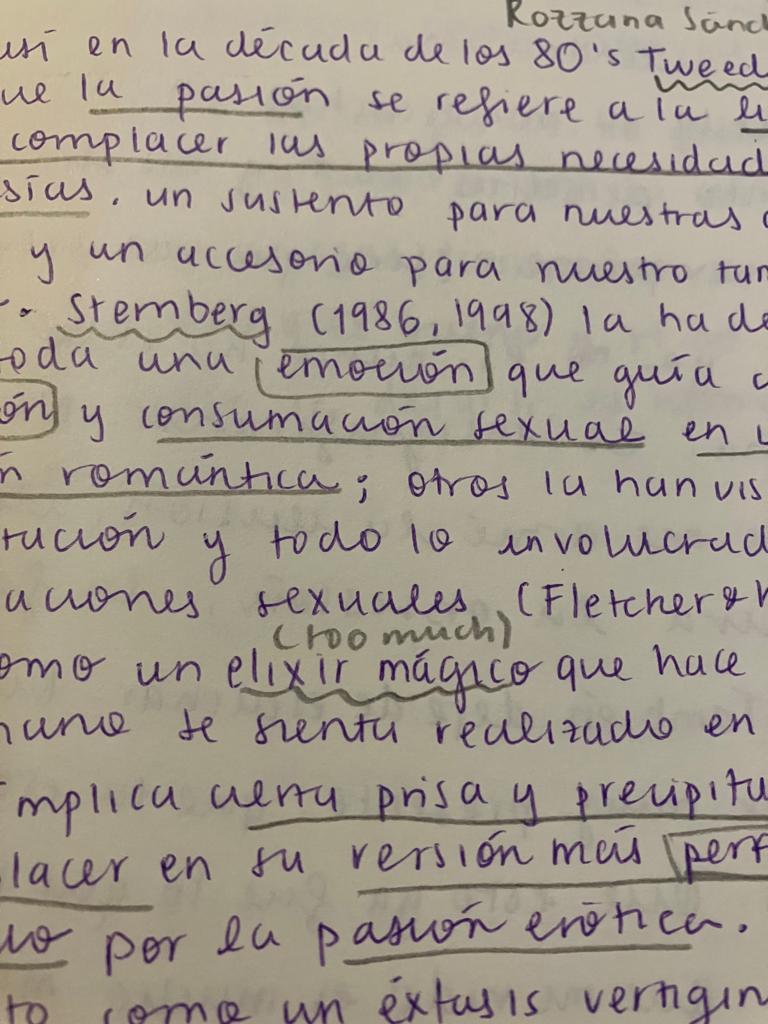 Rozzana Sánc
así en la década de los 80's Tweed
ue la pasión se refiere a la
complacer las propias necesidad
sías. un sustento para nuestras
y un accesorio para nuestro
Sternberg (1986, 1998) la ha de
toda una emoción que guía
ón y consumación sexual en u
n romántica; otros la han vis
tución y todo lo involucrad
aciones sexuales (Fletcher &
(too much)
omo un elixir mágico que hace
mano se sienta realizado en
Implica cierta prisa y precipita
lacer en su versión más perf
do por la pasión erótica.
to como un éxtasis vertigin